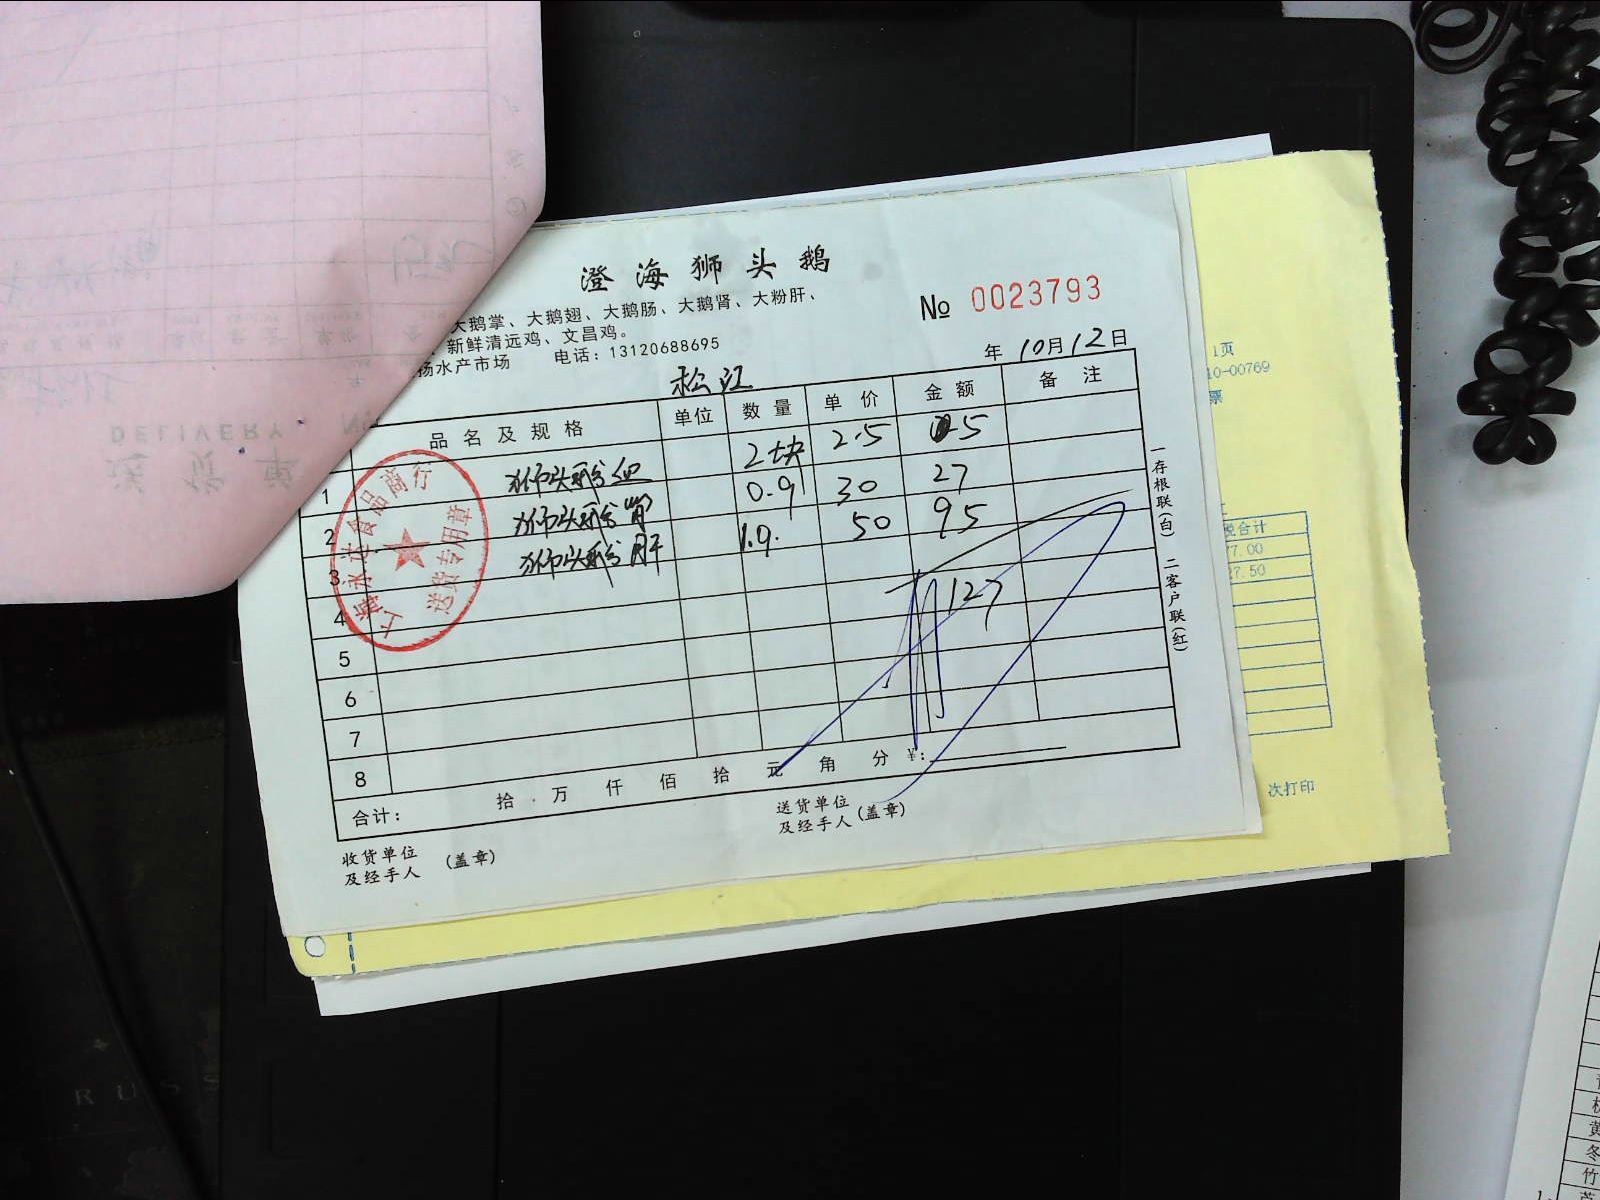 澄海狮头鹅
大鹅掌、大鹅翅、大鹅肠、大鹅肾、大粉肝、
新鲜清远鸡、文昌鸡。
扬水产市场 电话：13120688695
№ 0023793
年 10月12日
松江
品名及规格 单位 数量 单价 金额 备注
1 狮头鹅血 2块 2.5 5
2 狮头鹅肾 0.9 30 27
3 狮头鹅肝 1.9 50 95
4 127
5
6
7
8
合计： 拾 万 仟 佰 拾 元 角 分 ¥：
收货单位及经手人 （盖章）
送货单位及经手人（盖章）
一存根联（白） 二客户联（红）
食品商行
送货专用章
送货单
DELIVERY
1页
10-00769
票
税合计
77.00
27.50
次打印
RUSS
黄
冬
竹